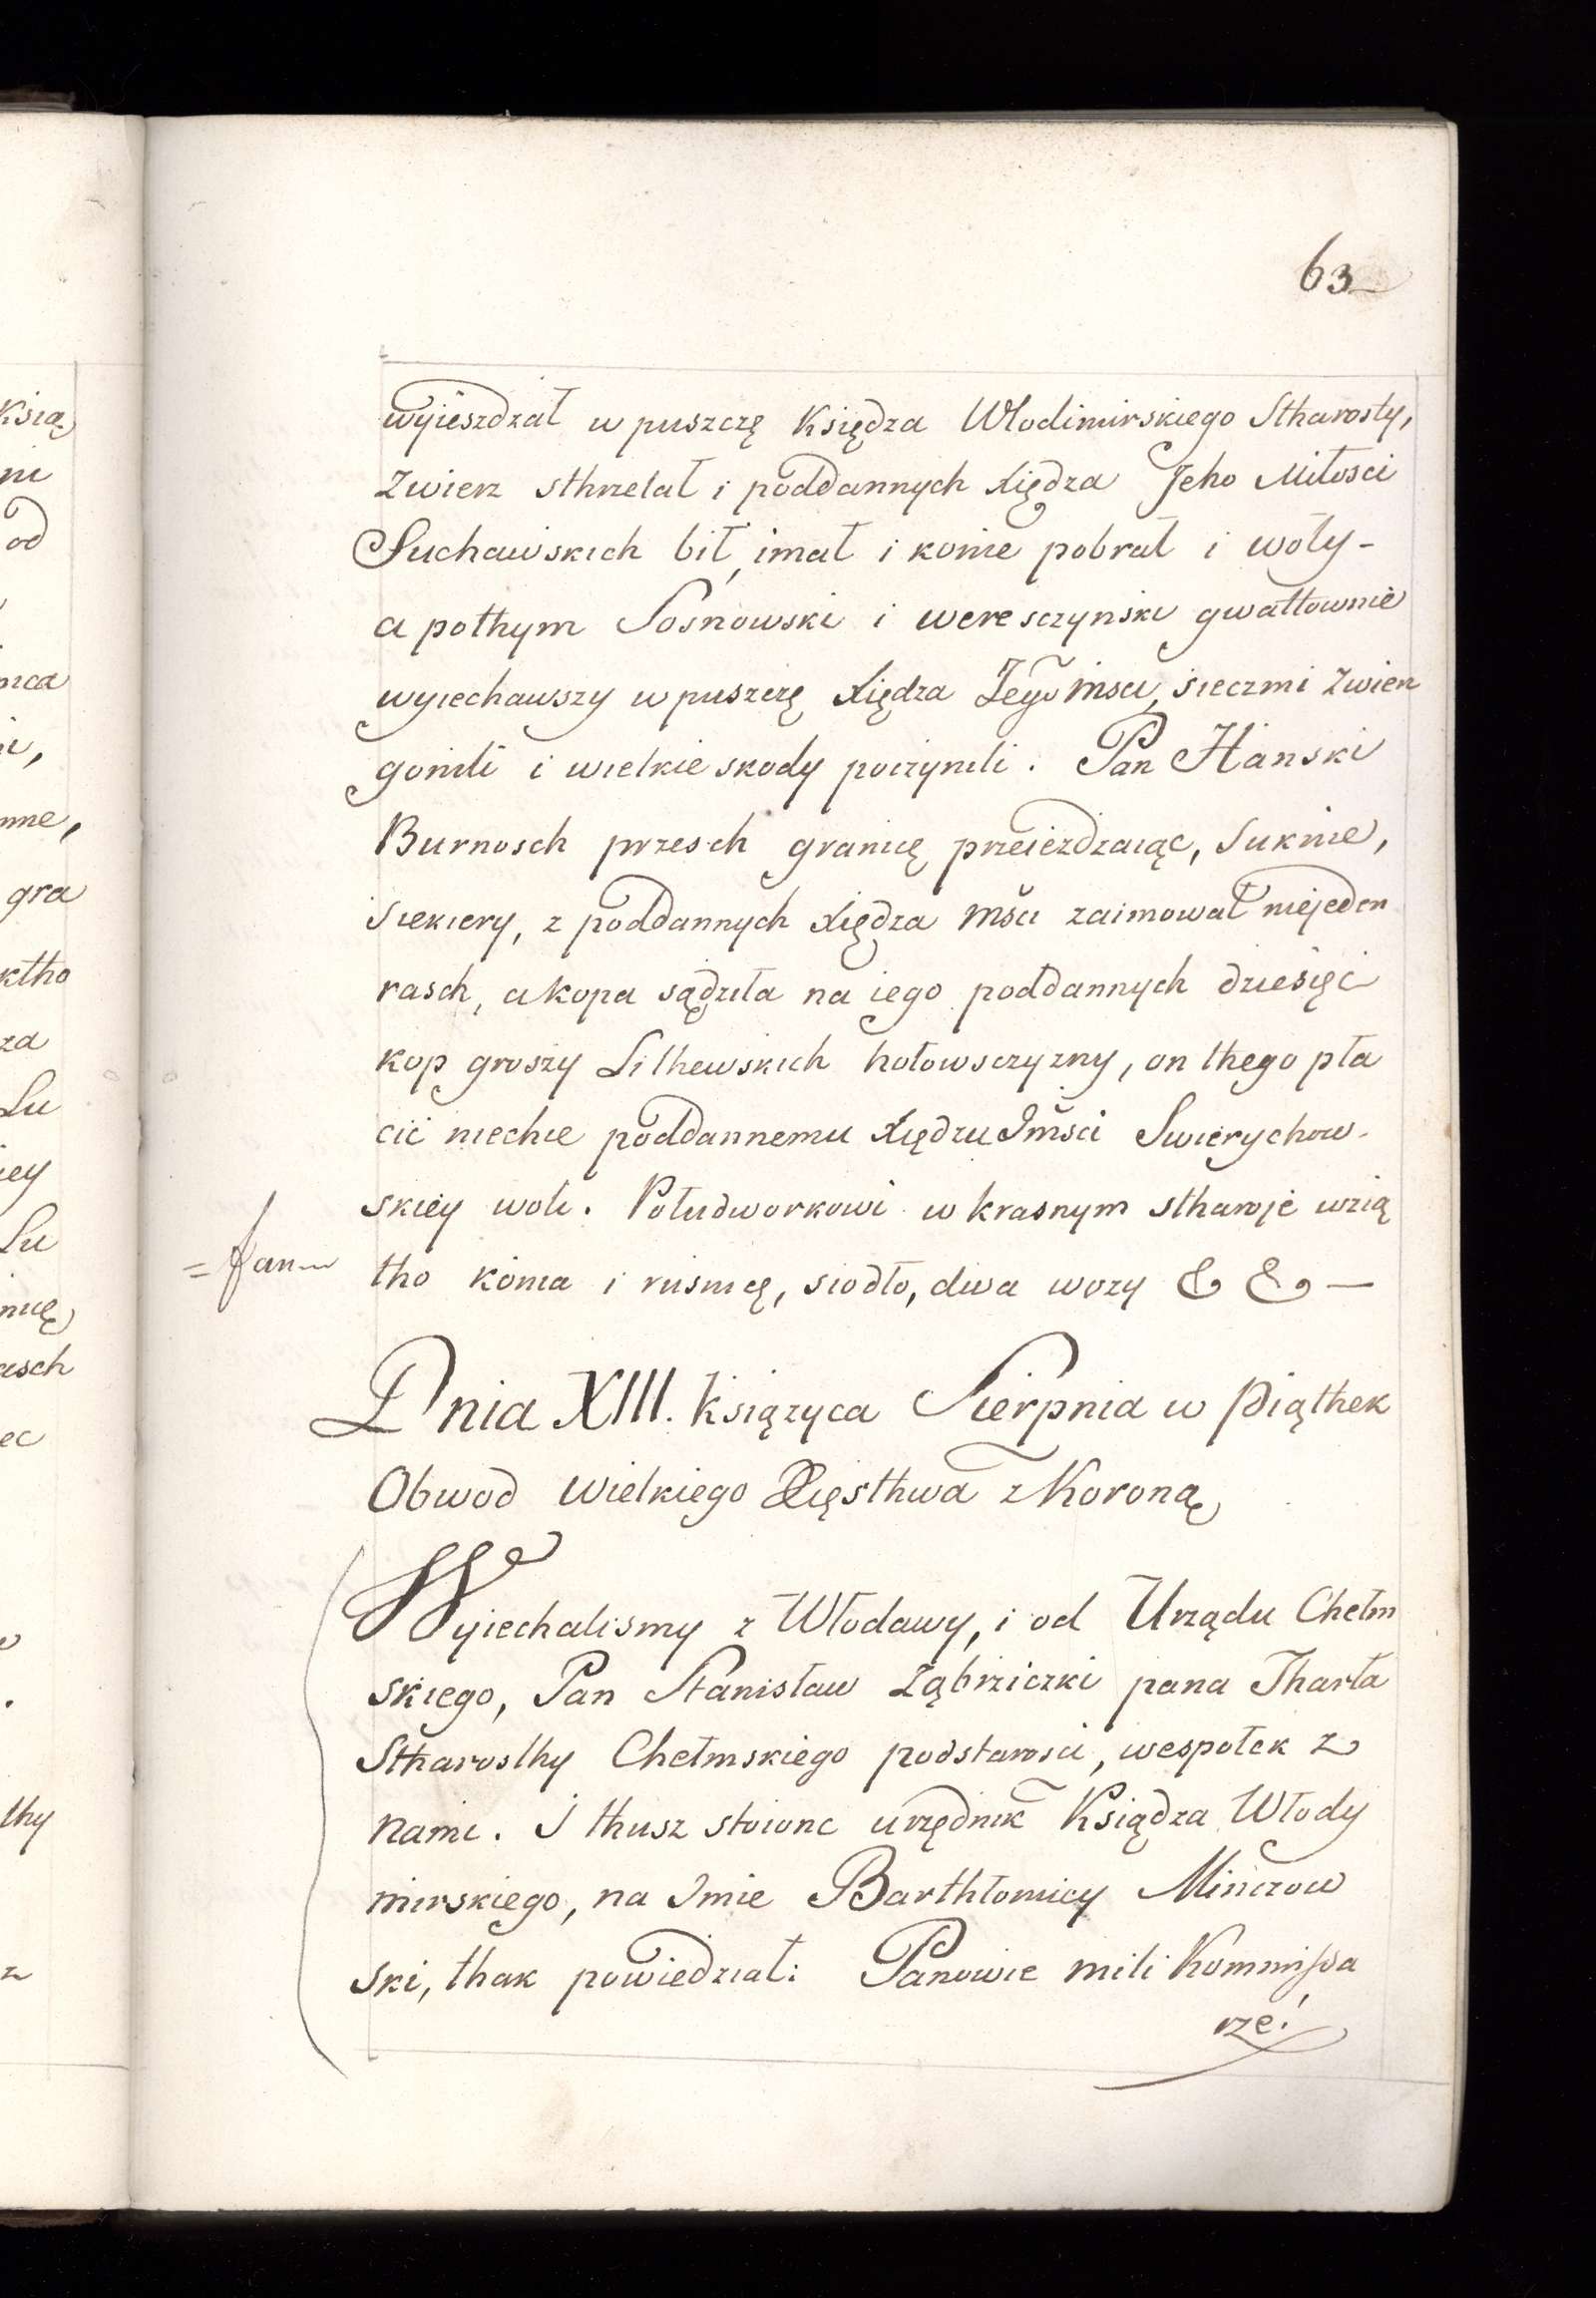 63
wyieszdzał w puszczę Księdza Włodimirskiego Stharosty,
Zwierz sthrzelał i poddannych Xiędza Jeho Miłosci
Suchawskich bił, imał i konie pobrał i woły -
a pothym Sosnowski i weresczynski gwałtownie
wyiechawszy w puszczę Xiędza Jego Msci, sieczmi zwierz
gonili i wielkie skody poczynili. Pan Hanski
Burnosch przesch granicę przeiezdzaiąc, suknie,
siekiery, z poddannych Xiędza Msci zaimował niejeden
rasch, a kopa sądziła na iego poddannych dziesięć
kop groszy Lithewskich hołowsczyzny, on thego pła
cić niechie poddannemu Xiędzu Jmsci Swierychow-
skiey woli. Połudworkowi w krasnym stharoje wzią
= fan
tho konia i rusnicę, siodło, dwa wozy & & —
Dnia XIII. księzyca Sierpnia w Piąthek
Obwod Wielkiego Xięsthwa z Koroną
Wyiechalismy z Włodawy, i od Urządu Chełm
skiego, Pan Stanisław Ząbrziczki pana Tharła
Stharosthy Chełmskiego podstarosci, wespołek z
nami. I thusz stoionc urzędnik Ksiądza Włody
mirskiego, na Imie Barthłomiey Minczow
ski, thak powiedział: Panowie mili Kommissa
rze!
Ksią
ni
od
nica
gra
ktho
za
Lu
iey
Lu
nicę
asch
ec
thy
z